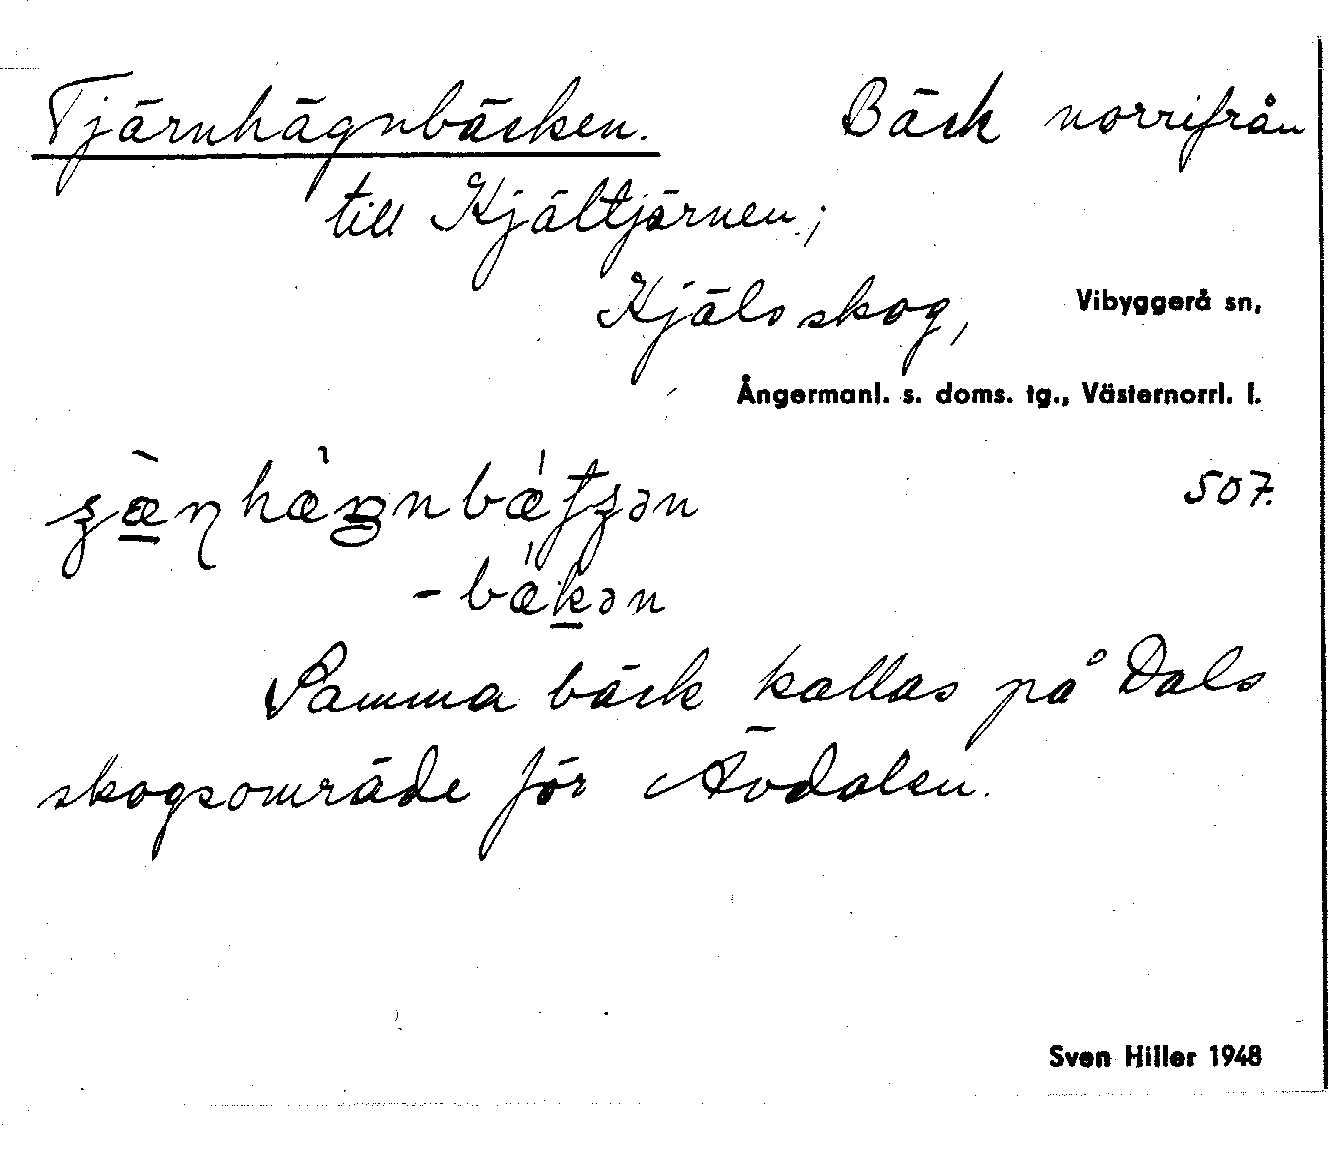 Tjärnhägnbäcken. Bäck norrifrån
till Kjältjärnen.;
Kjäls skog, Vibyggerå sn,
Ångermanl. s. doms. tg., Västernorrl. l.
507.
-bäkən
Samma bäck kallas på Dals
skogsområde för Ävdalen.
Sven Hiller 1948